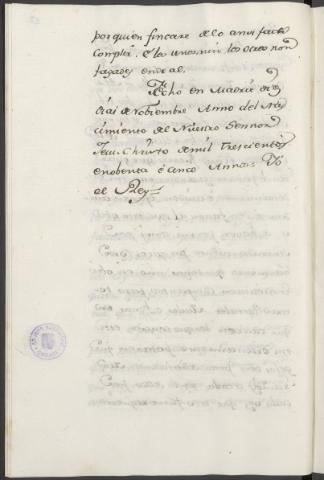 por quien fincare de lo ansi facer
complir. è los unos, nin los otros non
fagades ende al.
Fecho en Madrid
dias de Nobiembre Anno del Nas-
cimiento de Nuestro Sennor
Jesu Christo de mil trescientos
e nobenta è cinco Annos. Yo
el Rey =